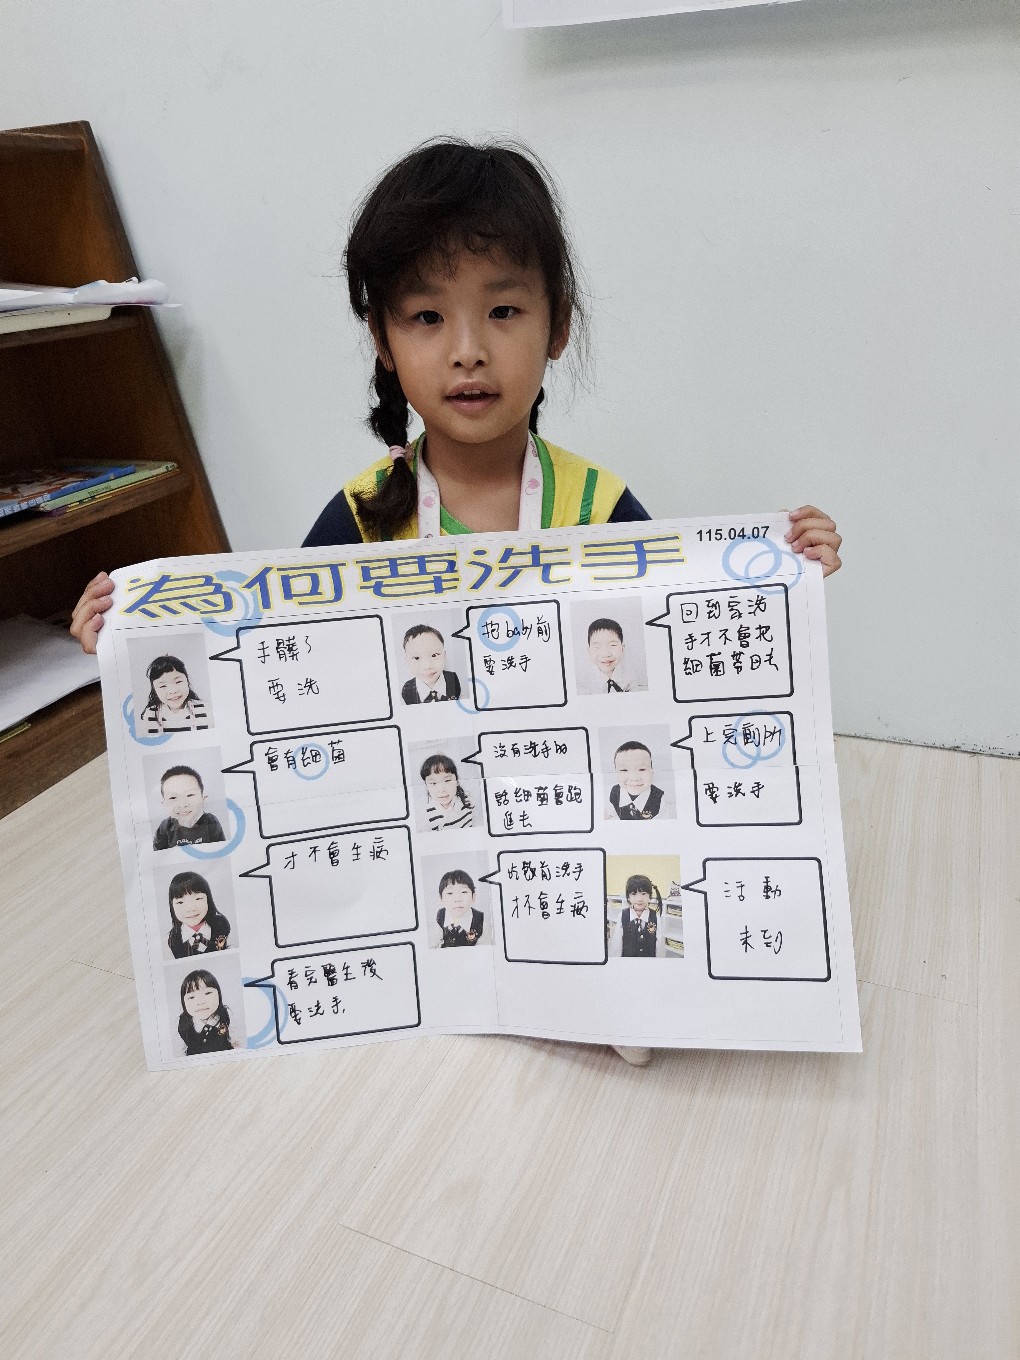 為何要洗手
115.04.07
手髒了
要洗
抱baby前
要洗手
回到家洗
手才不會把
細菌帶回去
會有細菌
沒有洗手的
話細菌會跑
進去
上完廁所
要洗手
才不會生病
吃飯前洗手
才不會生病
活動
未到
看完醫生後
要洗手,